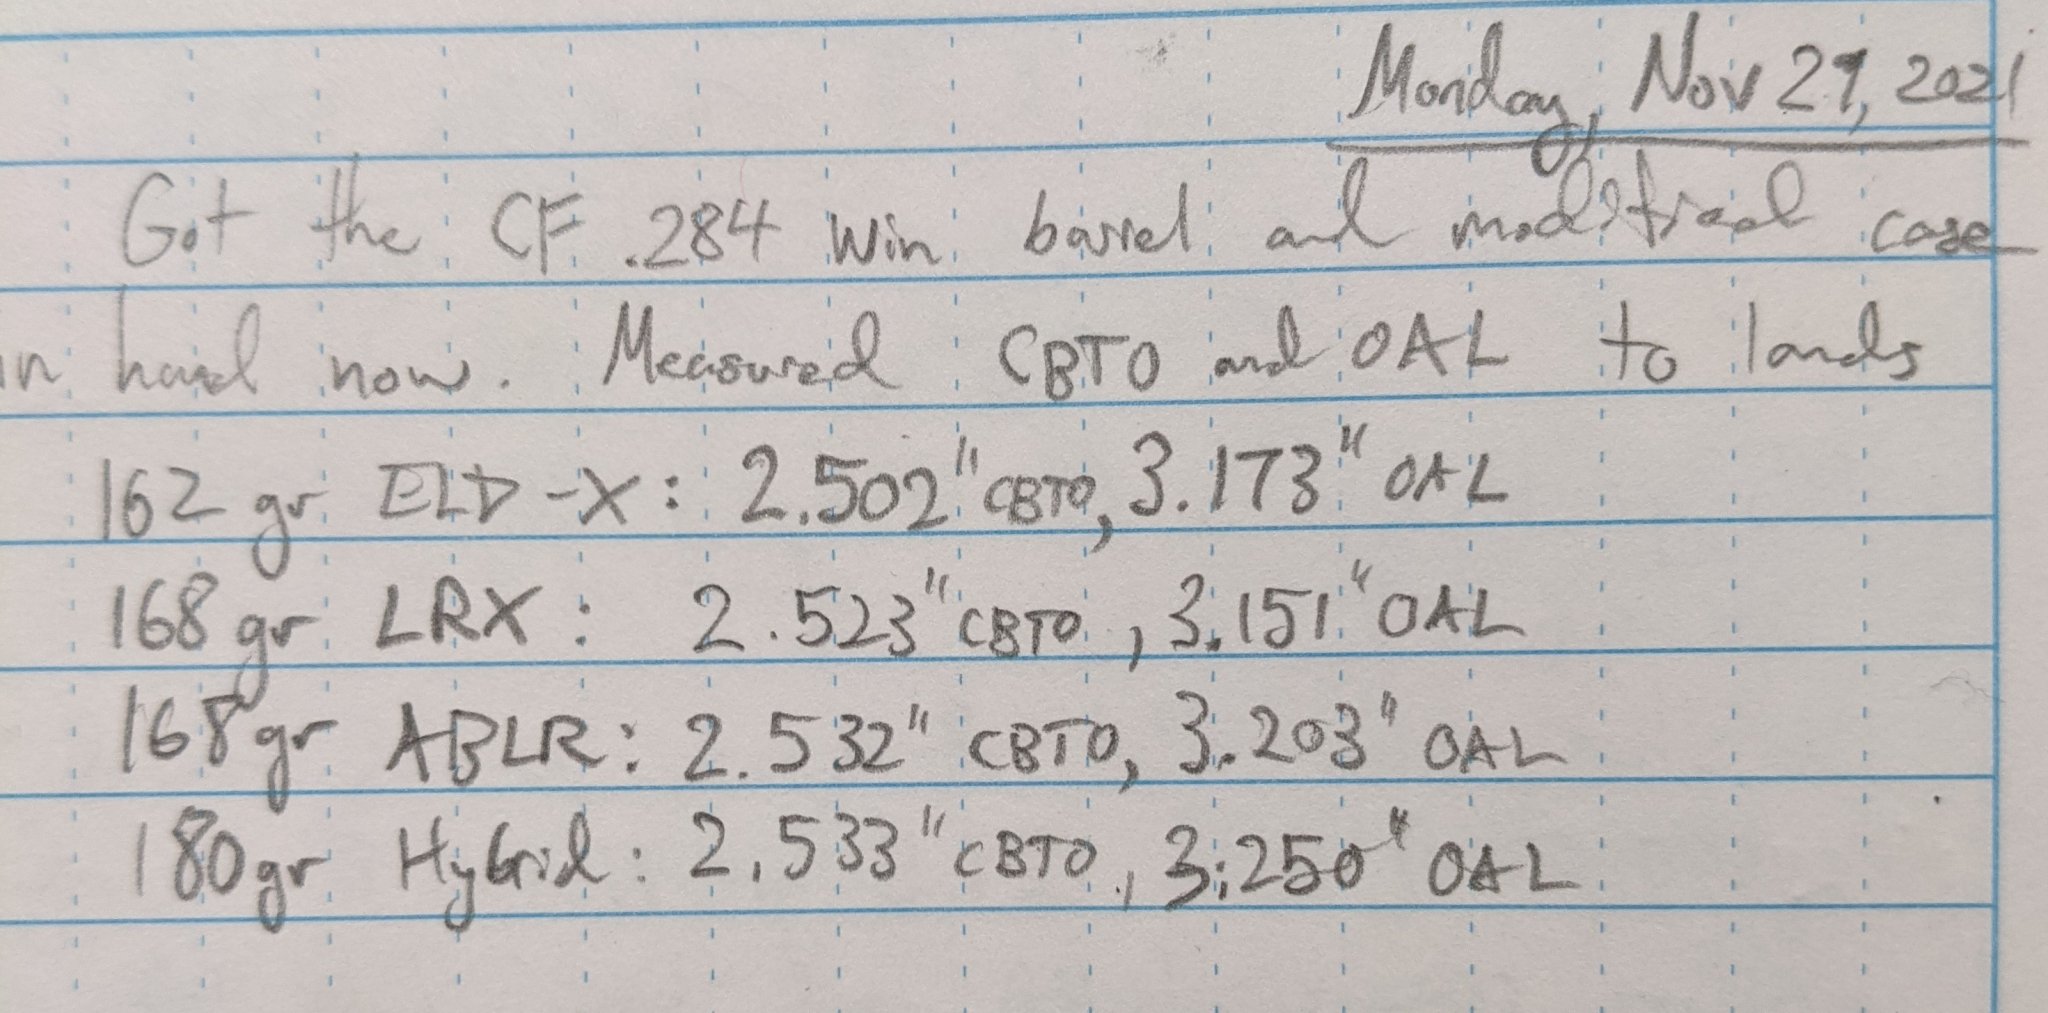 Monday, Nov 29, 2021
Got the CF .284 Win barrel and modified case
in hand now. Measured CBTO and OAL to lands
162 gr ELD-X: 2.502" CBTO, 3.173" OAL
168 gr LRX: 2.523" CBTO, 3.151" OAL
168 gr ABLR: 2.532" CBTO, 3.203" OAL
180 gr Hybrid: 2.533" CBTO, 3.250" OAL